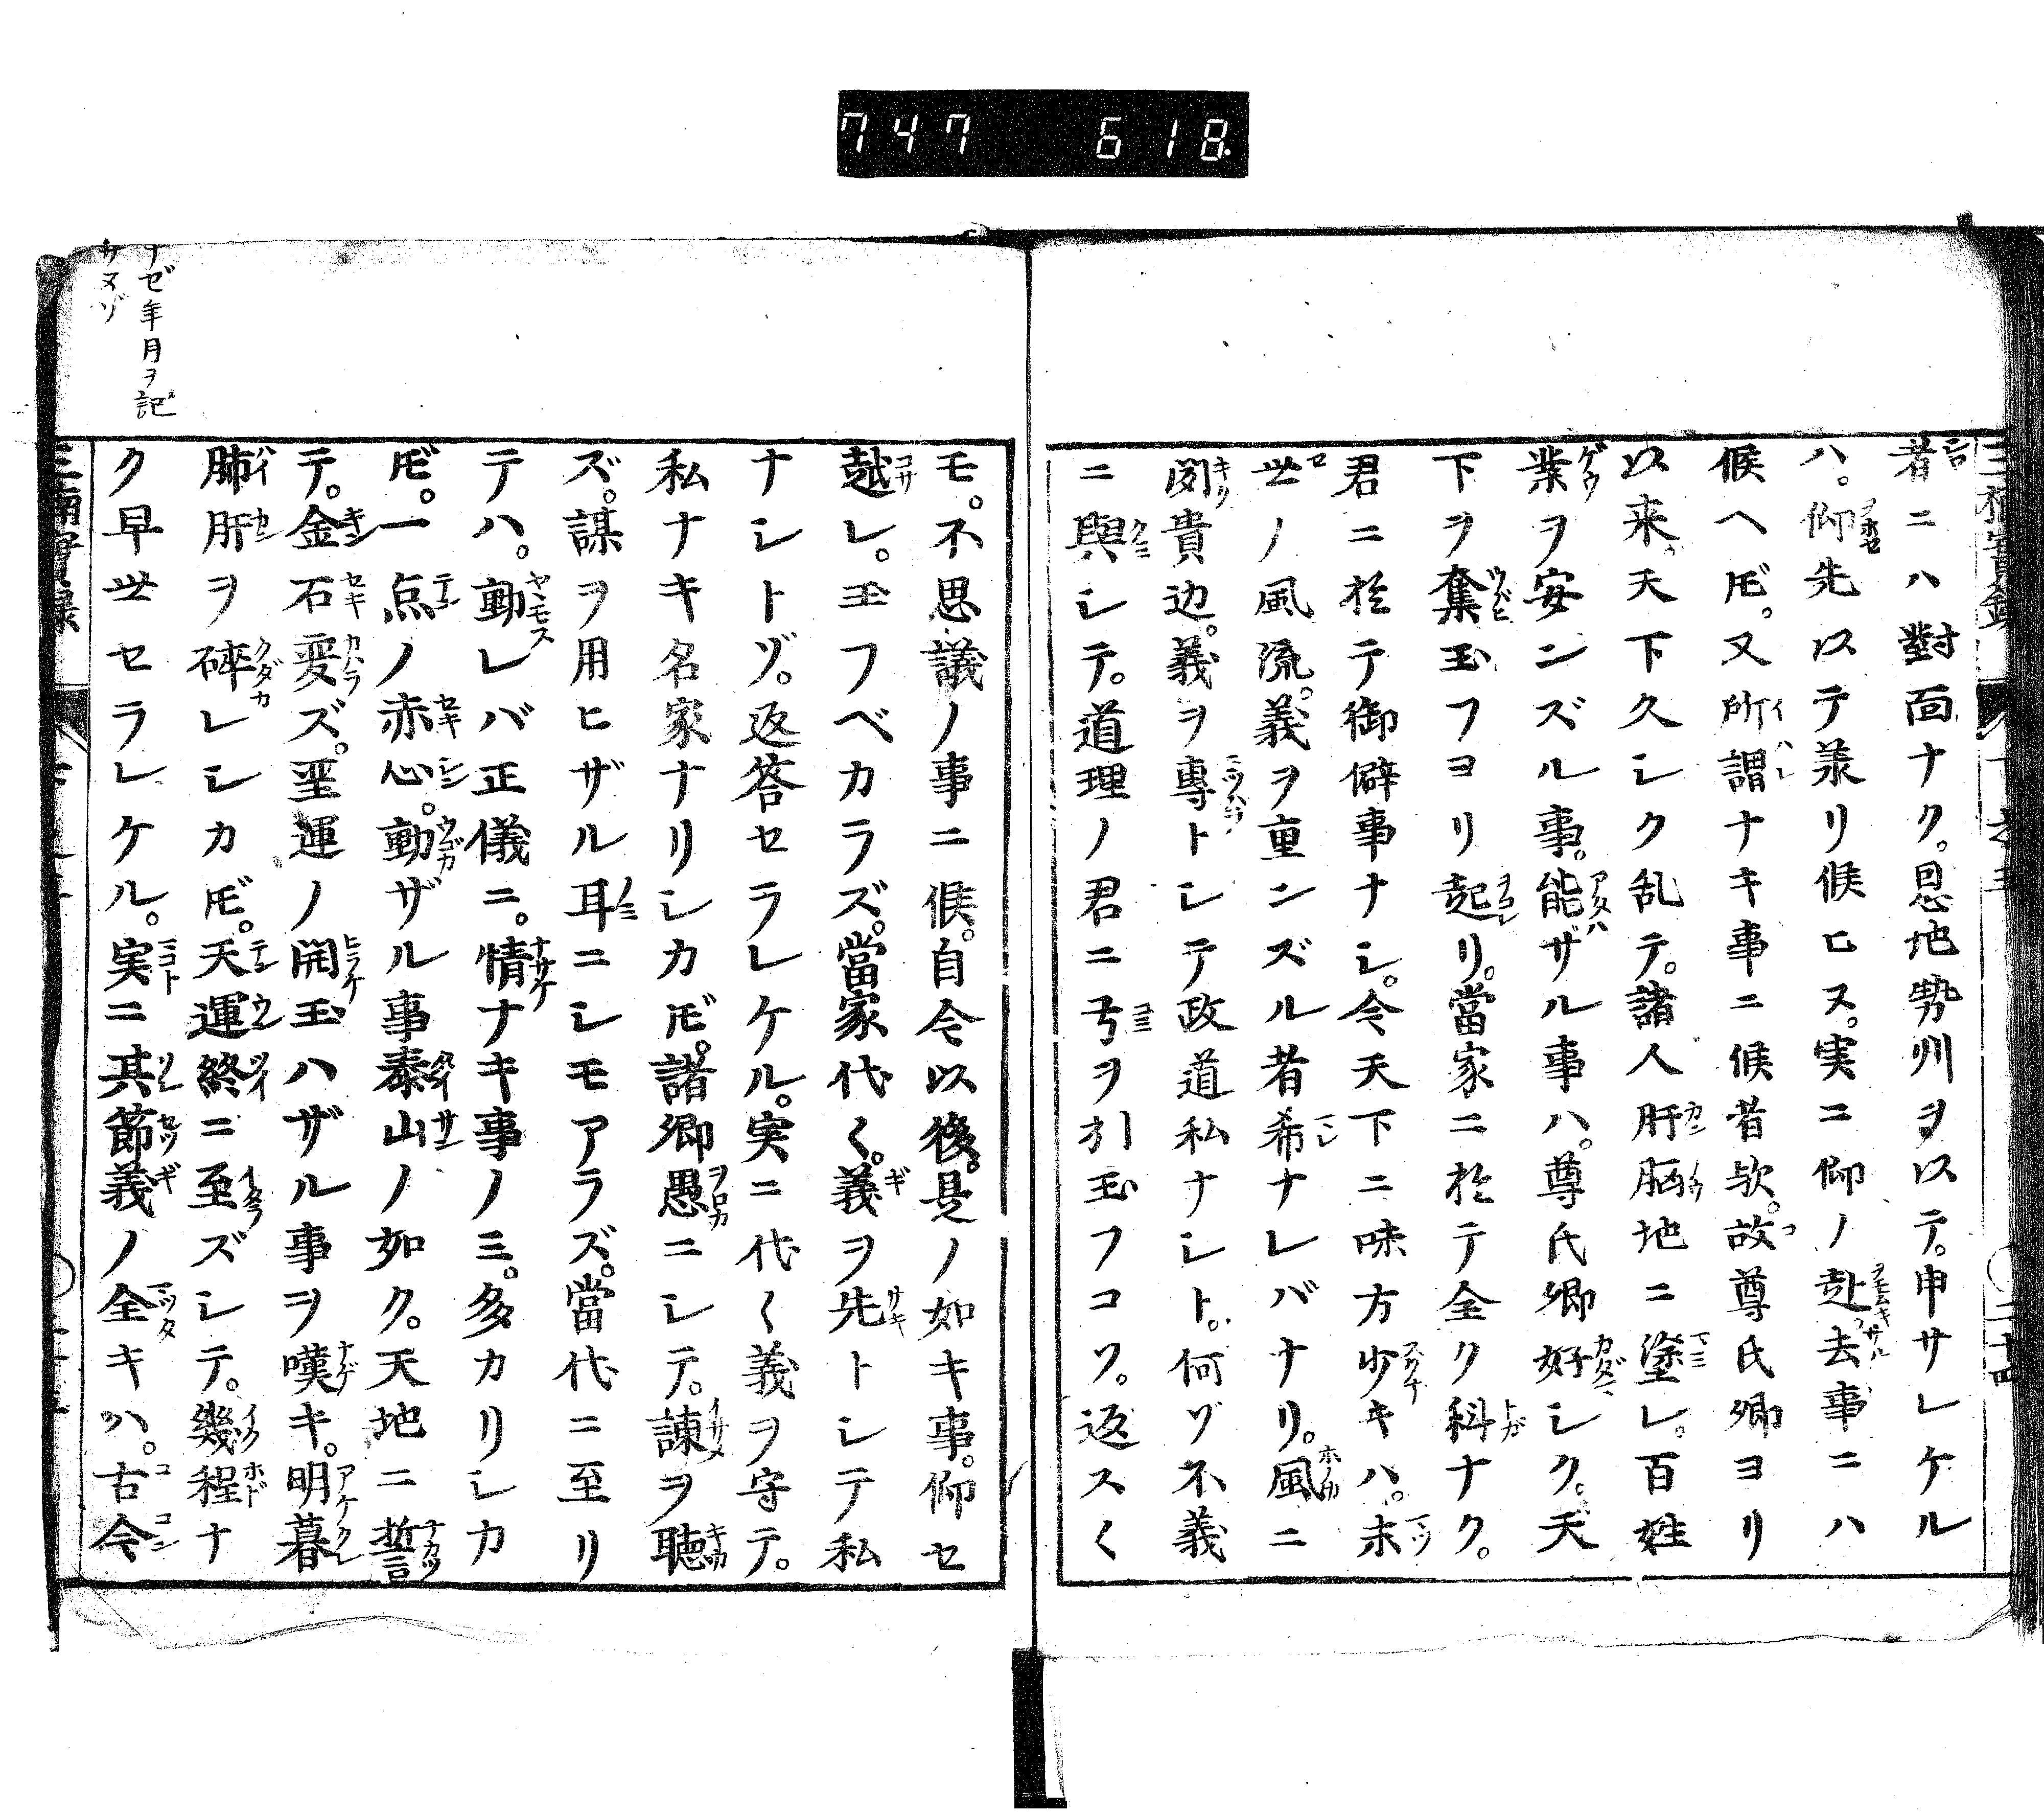 747 618
者ニハ對面ナク。恩地勢州ヲ以テ。申サレケル
ハ。仰先以テ羕リ候ヒヌ。実ニ仰ノ赴去事ニハ
候ヘ𪜈。又所謂ナキ事ニ候昔欤。故尊氏卿ヨリ
以来。天下久シク乱テ。諸人肝脳地ニ塗レ。百姓
業ヲ安ンズル事。能ザル事ハ。尊氏卿好シク。天
下ヲ奪玉フヨリ起リ。當家ニ於テ全ク科ナク。
君ニ於テ御僻事ナシ。今天下ニ味方少キハ。末
世ノ風流。義ヲ重ンズル者希ナレバナリ。風ニ
聞貴辺。義ヲ專トシテ政道私ナシト。何ゾ不義
ニ與シテ。道理ノ君ニ弓ヲ引玉フコヿ。返スく
モ。不思議ノ事ニ候。自今以後。是ノ如キ事。仰セ
越レ。玉フベカラズ。當家代く。義ヲ先トシテ私
ナシトゾ。返答セラレケル。実ニ代く義ヲ守テ。
私ナキ名家ナリシカ𪜈。諸卿愚ニシテ。諫ヲ聴
ズ。謀ヲ用ヒザル耳ニシモアラズ。當代ニ至リ
テハ。動レバ正儀ニ。情ナキ事ノミ。多カリシカ
𪜈。一点ノ赤心。動ザル事泰山ノ如ク。天地ニ誓
テ。金石変ズ。聖運ノ開玉ハザル事ヲ嘆キ。明暮
肺肝ヲ碎レシカ𪜈。天運終ニ至ズシテ。幾程ナ
ク早世セラレケル。実ニ其節義ノ全キハ。古今
ナゼ年月ヲ記
サヌゾ